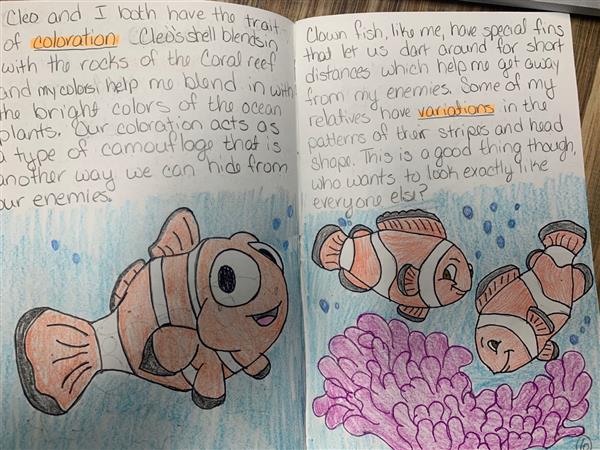 Cleo and I both have the trait
of coloration. Cleo's shell blends in
with the rocks of the Coral reef
and my colors help me blend in with
the bright colors of the ocean
plants. Our coloration acts as
a type of camouflage that is
another way we can hide from
our enemies.
Clown fish, like me, have special fins
that let us dart around for short
distances which help me get away
from my enemies. Some of my
relatives have variations in the
patterns of their stripes and head
shape. This is a good thing though,
who wants to look exactly like
everyone else?
6